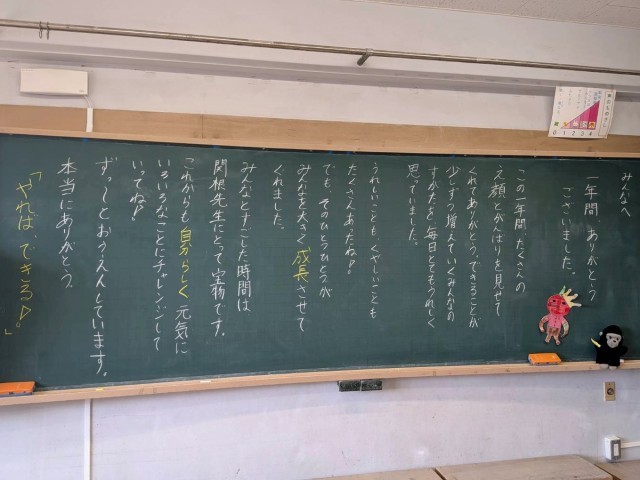 みんなへ
一年間 ありがとう
ございました。
この一年間、たくさんの
え顔とがんばりを見せて
くれてありがとう。できることが
少しずつ増えていくみんなの
すがたを、毎日とてもうれしく
思っていました。
うれしいことも、くやしいことも
たくさんあったね!!
でも、そのひとつひとつが
みんなを大きく成長させて
くれました。
みんなとすごした時間は
関根先生にとって宝物です。
これからも自分らしく元気に
いろいろなことにチャレンジして
いってね!
ずーっとおうえんしています。
本当にありがとう。
「やれば、できる!」
0 1 2 3 4